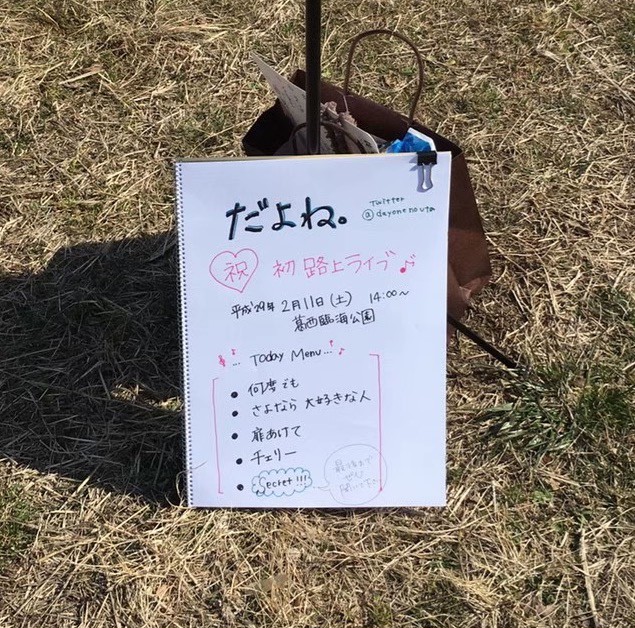 だよね。
Twitter
@dayone no uta
祝 初路上ライブ♪
平成29年 2月11日(土) 14:00~
葛西臨海公園
♪... Today Menu...♪
• 何度でも
• さよなら 大好きな人
• 扉あけて
• チェリー
• Secret!!!
最後まで
ぜひ
聞いて下さい